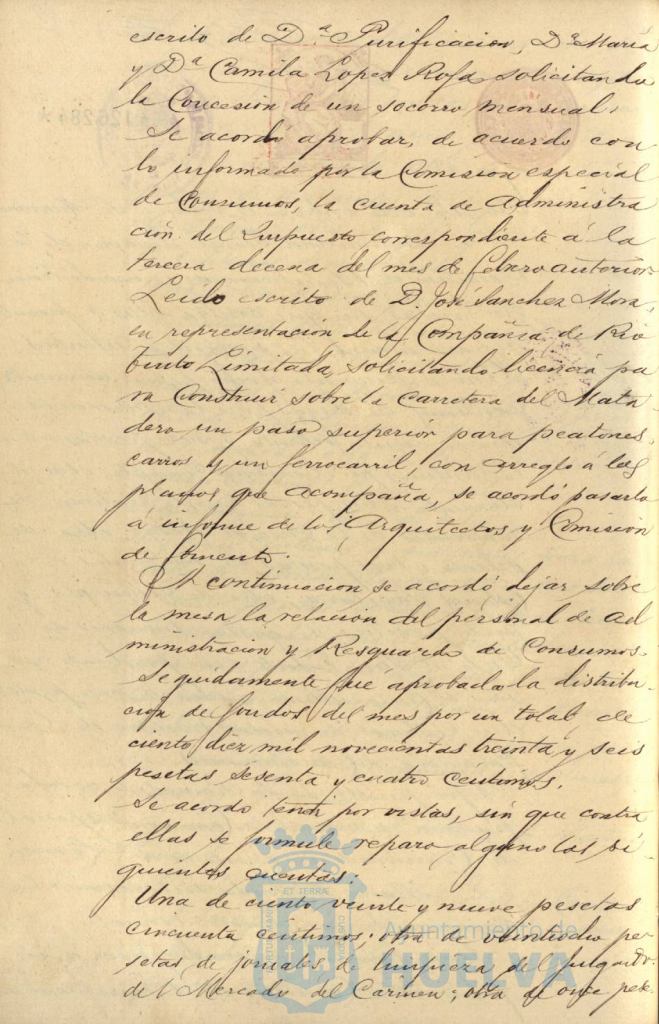 escrito de D.ª Purificacion, D.ª Maria
y D.ª Camila Lopez Rofa solicitando
la Concesion de un socorro mensual.
Se acordó aprobar, de acuerdo con
lo informado por la Comision especial
de Consumos, la cuenta de Administra
ción del Impuesto correspondiente á la
tercera decena del mes de febrero anterior
Leido escrito de D. José Sanchez Mora,
en representación de la Compañia de Rio
tinto Limitada, solicitando licencia pa
ra Construir sobre la carretera del Mata
dero un paso superior para peatones,
carros y un ferrocarril, con arreglo á los
planos que acompaña, se acordó pasarla
á informe de los Arquitectos y Comision
de fomento.
A continuacion se acordó dejar sobre
la mesa la relación del personal de ad
ministracion y Resguardo de Consumos.
Seguidamente fué aprobada la distribu
ción de fondos del mes por un total de
ciento diez mil novecientas treinta y seis
pesetas sesenta y cuatro céntimos.
Se acordo tener por vistas, sin que contra
ellas se formule reparo alguno las si
guientes cuentas.
Una de ciento veinte y nueve pesetas
cincuenta centimos; otra de veintiocho pe
setas de jornales de limpieza del
del Mercado del Carmen; otra de once pese
Ayuntamiento de
HUELVA